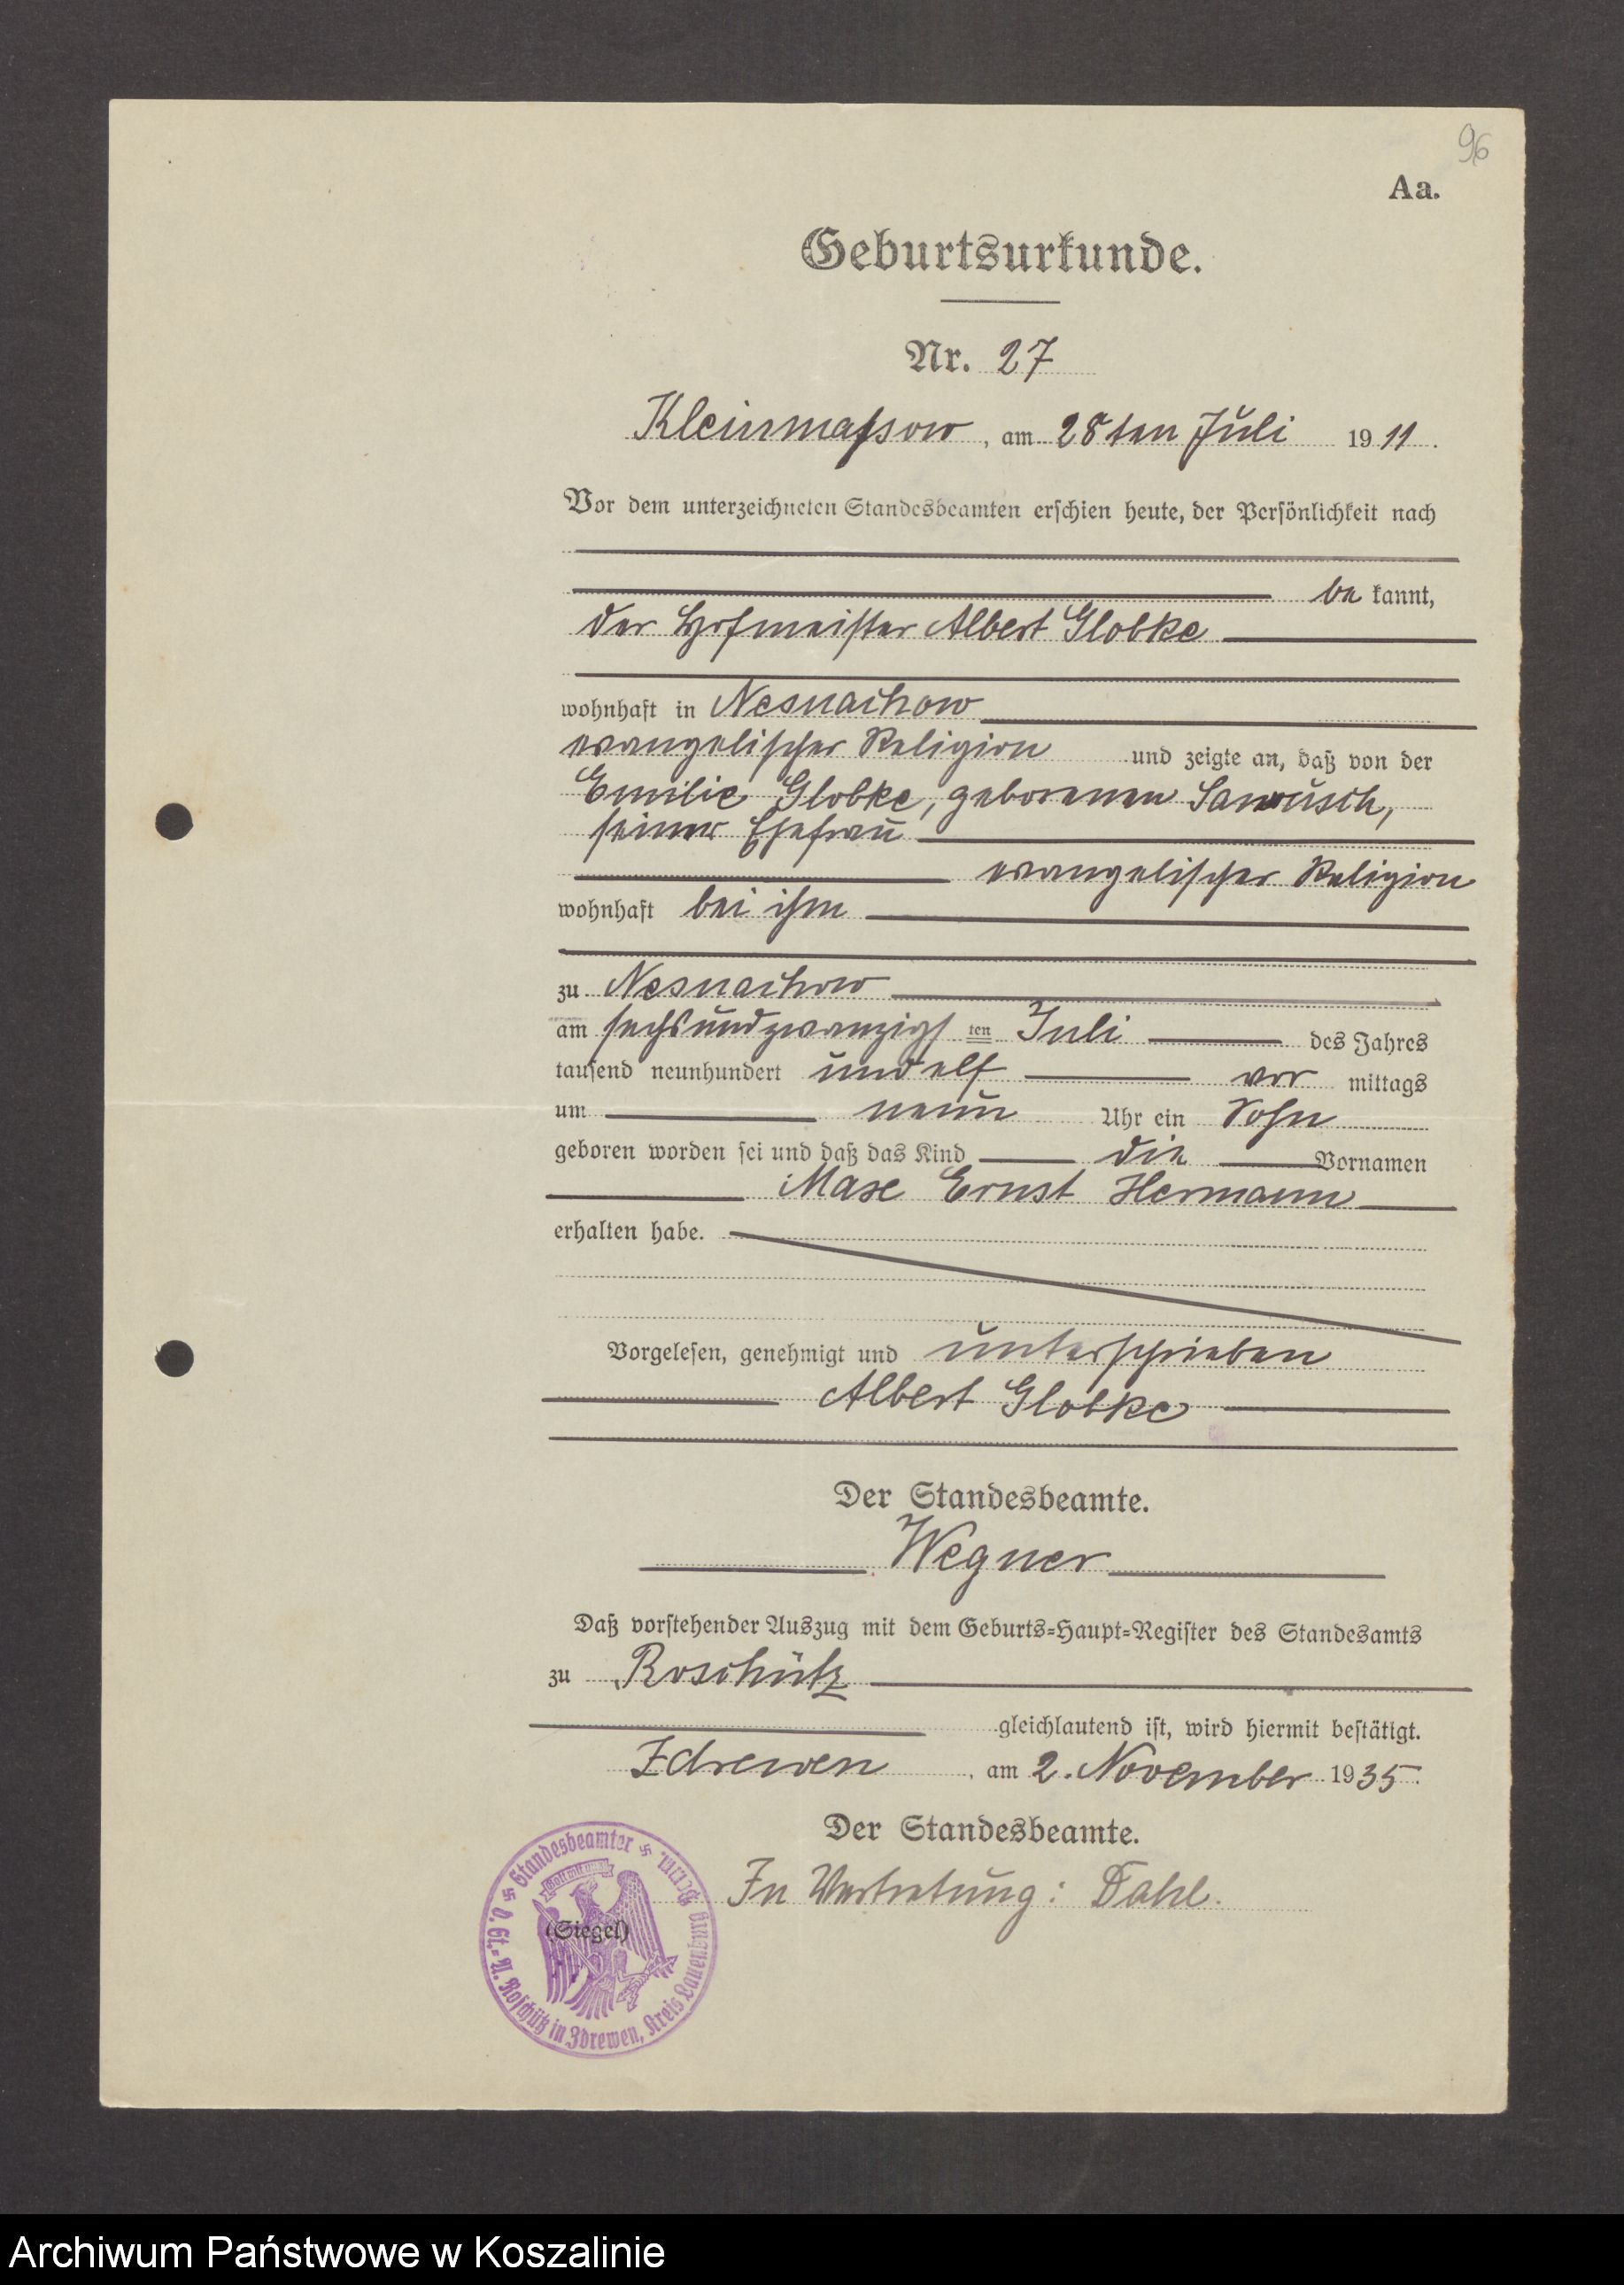 96
Aa.
Geburtsurkunde.
Nr. 27
Kleinmaßow, am 28ten Juli 1911.
Vor dem unterzeichneten Standesbeamten erschien heute, der Persönlichkeit nach
be kannt,
der Hofmeister Albert Globke
wohnhaft in Nesnachow
evangelischer Religion und zeigte an, daß von der
Emilie Globke, geborenen
seiner Ehefrau
evangelischer Religion
wohnhaft bei ihm
zu Nesnachow
am sechsundzwanzigsten Juli des Jahres
tausend neunhundert und elf vor mittags
um neun Uhr ein Sohn
geboren worden sei und daß das Kind die Vornamen
Max Ernst Hermann
erhalten habe.
Vorgelesen, genehmigt und unterschrieben
Albert Globke
Der Standesbeamte.
Wegner
Daß vorstehender Auszug mit dem Geburts-Haupt-Register des Standesamts
zu Roschütz
gleichlautend ist, wird hiermit bestätigt.
Zdrewen, am 2. November 1935.
Der Standesbeamte.
In Vertretung: Dahl.
(Siegel)
Standesbeamter d. St.-A. Roschütz in Zdrewen, Kreis Lauenburg Pom.
Gott mit uns
Archiwum Państwowe w Koszalinie